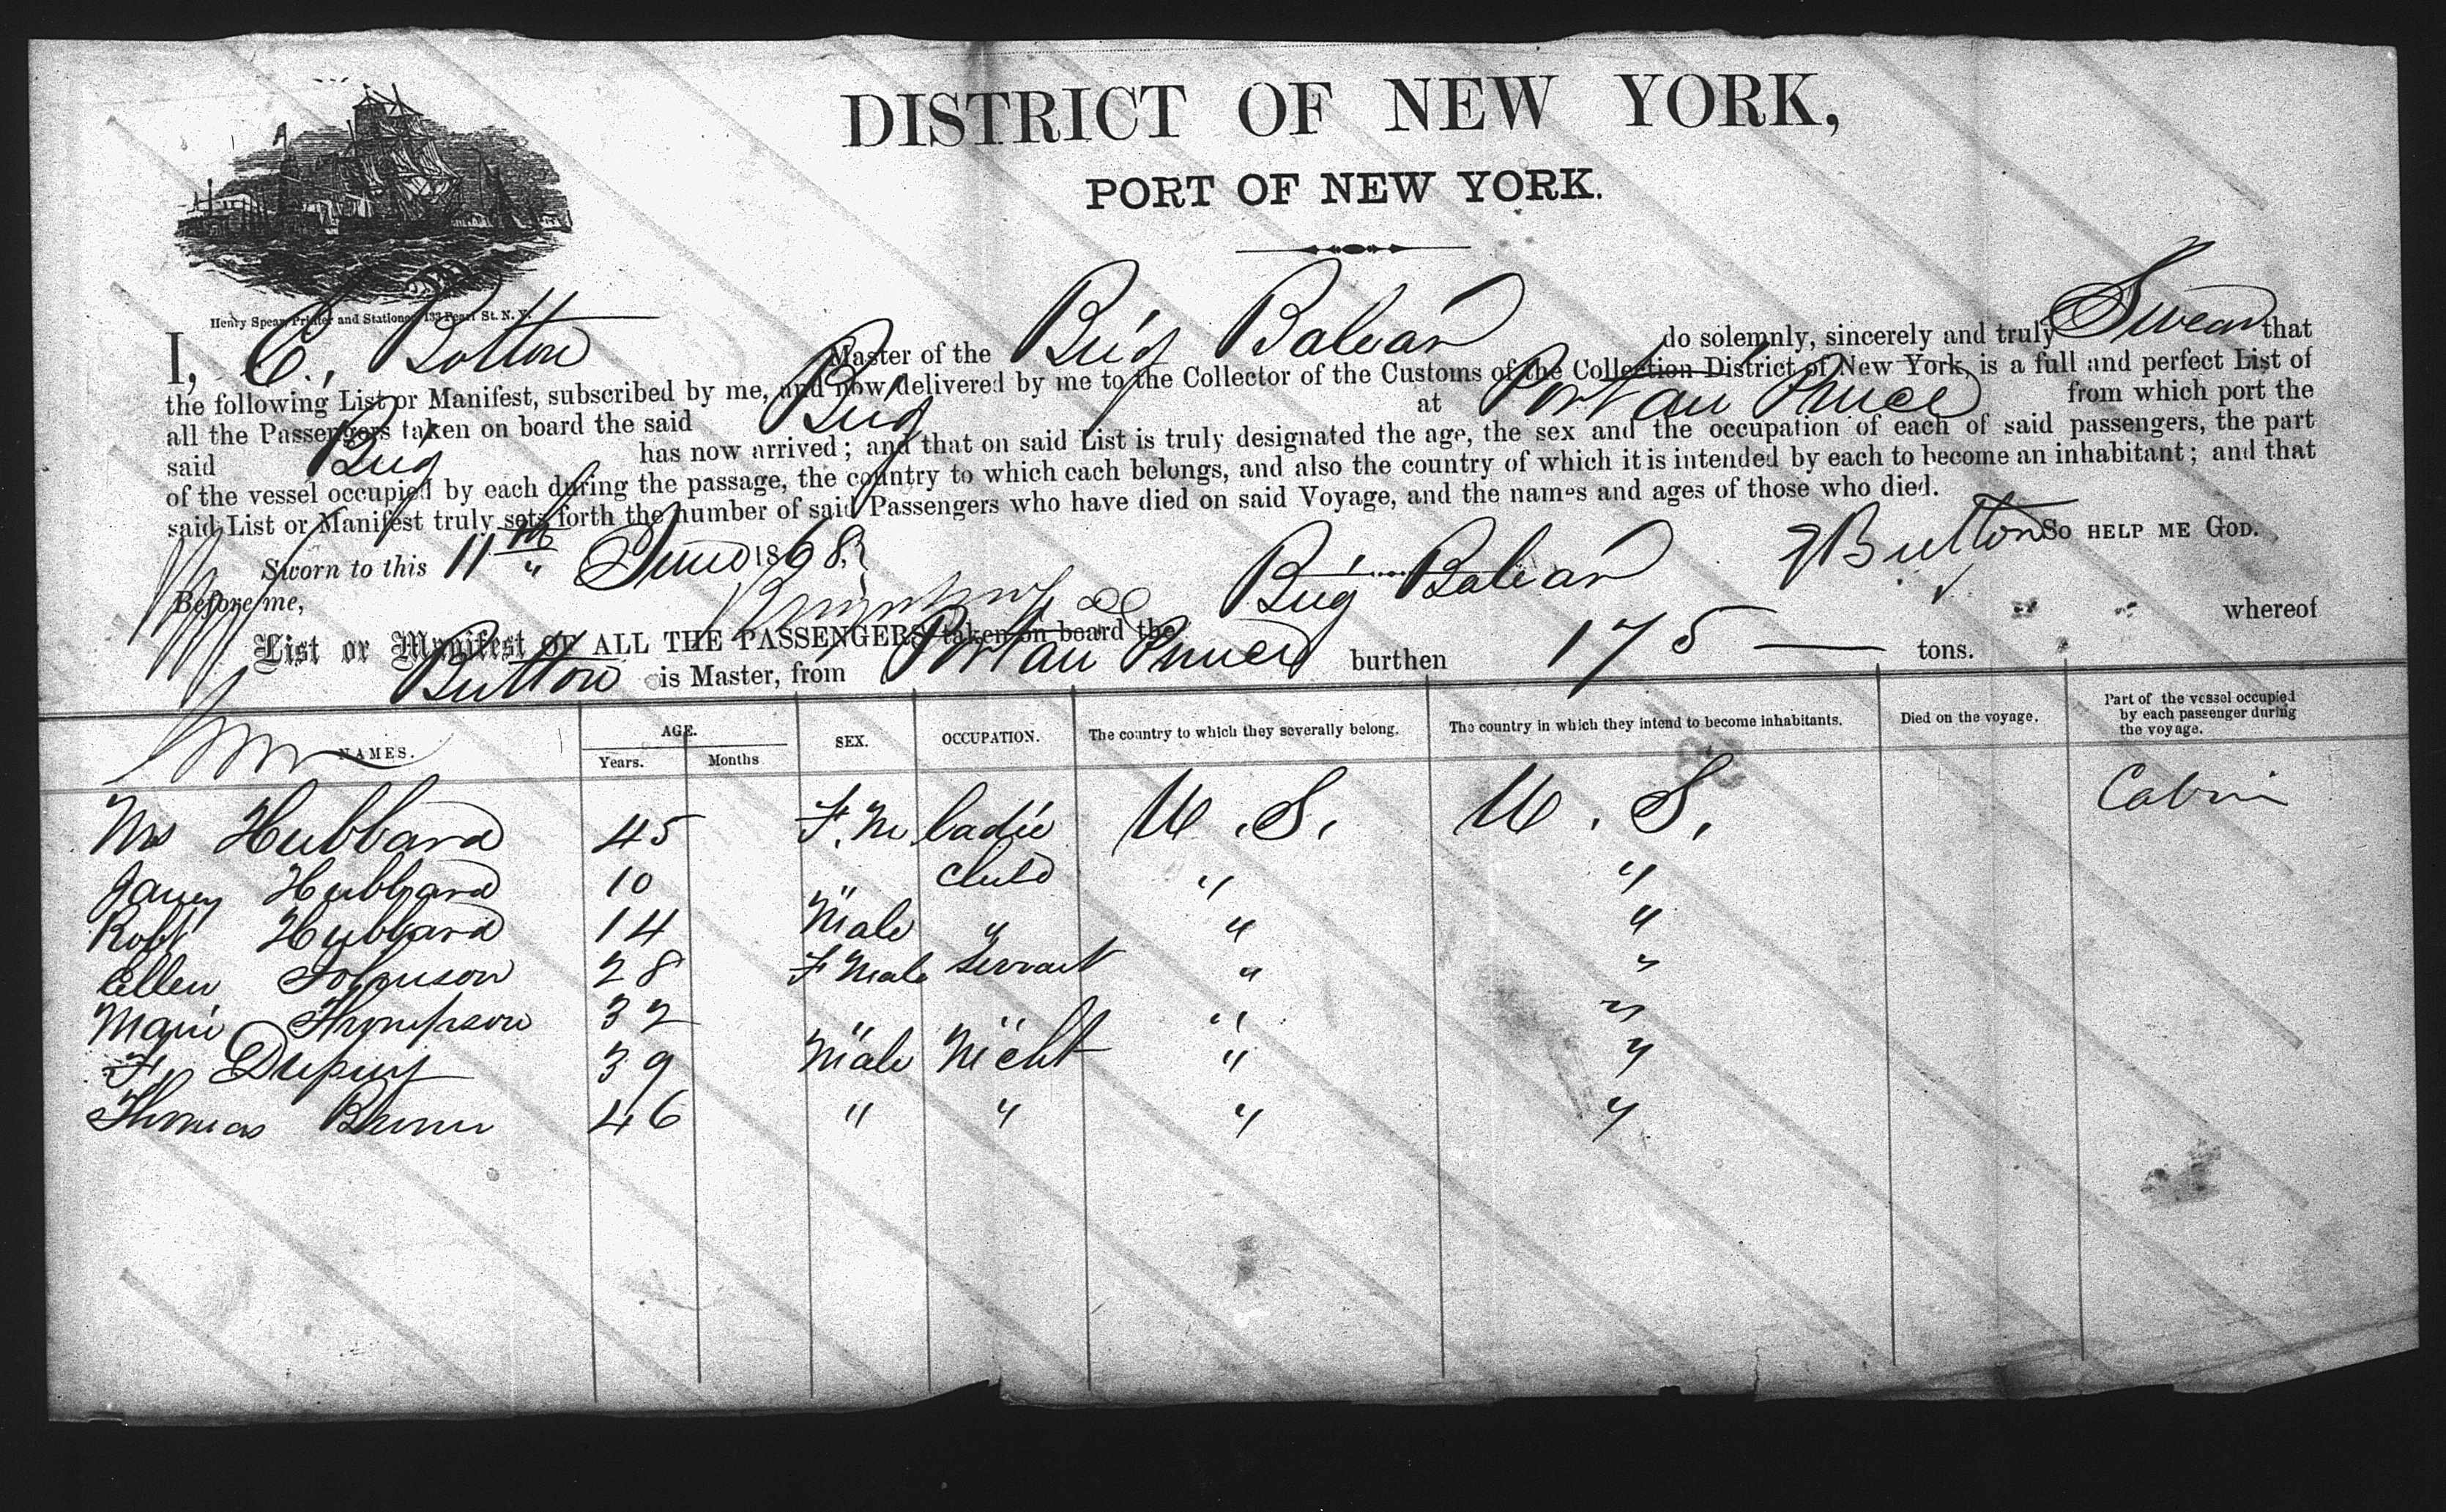 DISTRICT OF NEW YORK,
PORT OF NEW YORK.
Henry Spear, Printer and Stationer, 133 Pearl St. N. Y.
I, C. Botton Master of the Brig Balear do solemnly, sincerely and truly Swear that
the following List or Manifest, subscribed by me, and now delivered by me to the Collector of the Customs of the Collection District of New York, is a full and perfect List of
all the Passengers taken on board the said Brig at Port au Prince from which port the
said Brig has now arrived; and that on said List is truly designated the age, the sex and the occupation of each of said passengers, the part
of the vessel occupied by each during the passage, the country to which each belongs, and also the country of which it is intended by each to become an inhabitant; and that
said List or Manifest truly sets forth the number of said Passengers who have died on said Voyage, and the names and ages of those who died.
Sworn to this 11th June 1868. Button So HELP ME GOD.
Before me,
List or Manifest OF ALL THE PASSENGERS taken on board the Brig Balear whereof
Button is Master, from Port au Prince burthen 175 tons.
NAMES. AGE. Years. Months SEX. OCCUPATION. The country to which they severally belong. The country in which they intend to become inhabitants. Died on the voyage. Part of the vessel occupied by each passenger during the voyage.
Mrs Hubbard 45 F.M Ladie U.S. U.S. Cabin
Janey Hubbard 10 " Child " "
Robt Hubbard 14 Male " " "
Ellen Johnson 28 F Male Servant " "
Marie Thompson 32 " " " "
F. Dupuy 39 Male Mcht " "
Thomas 46 " " " "